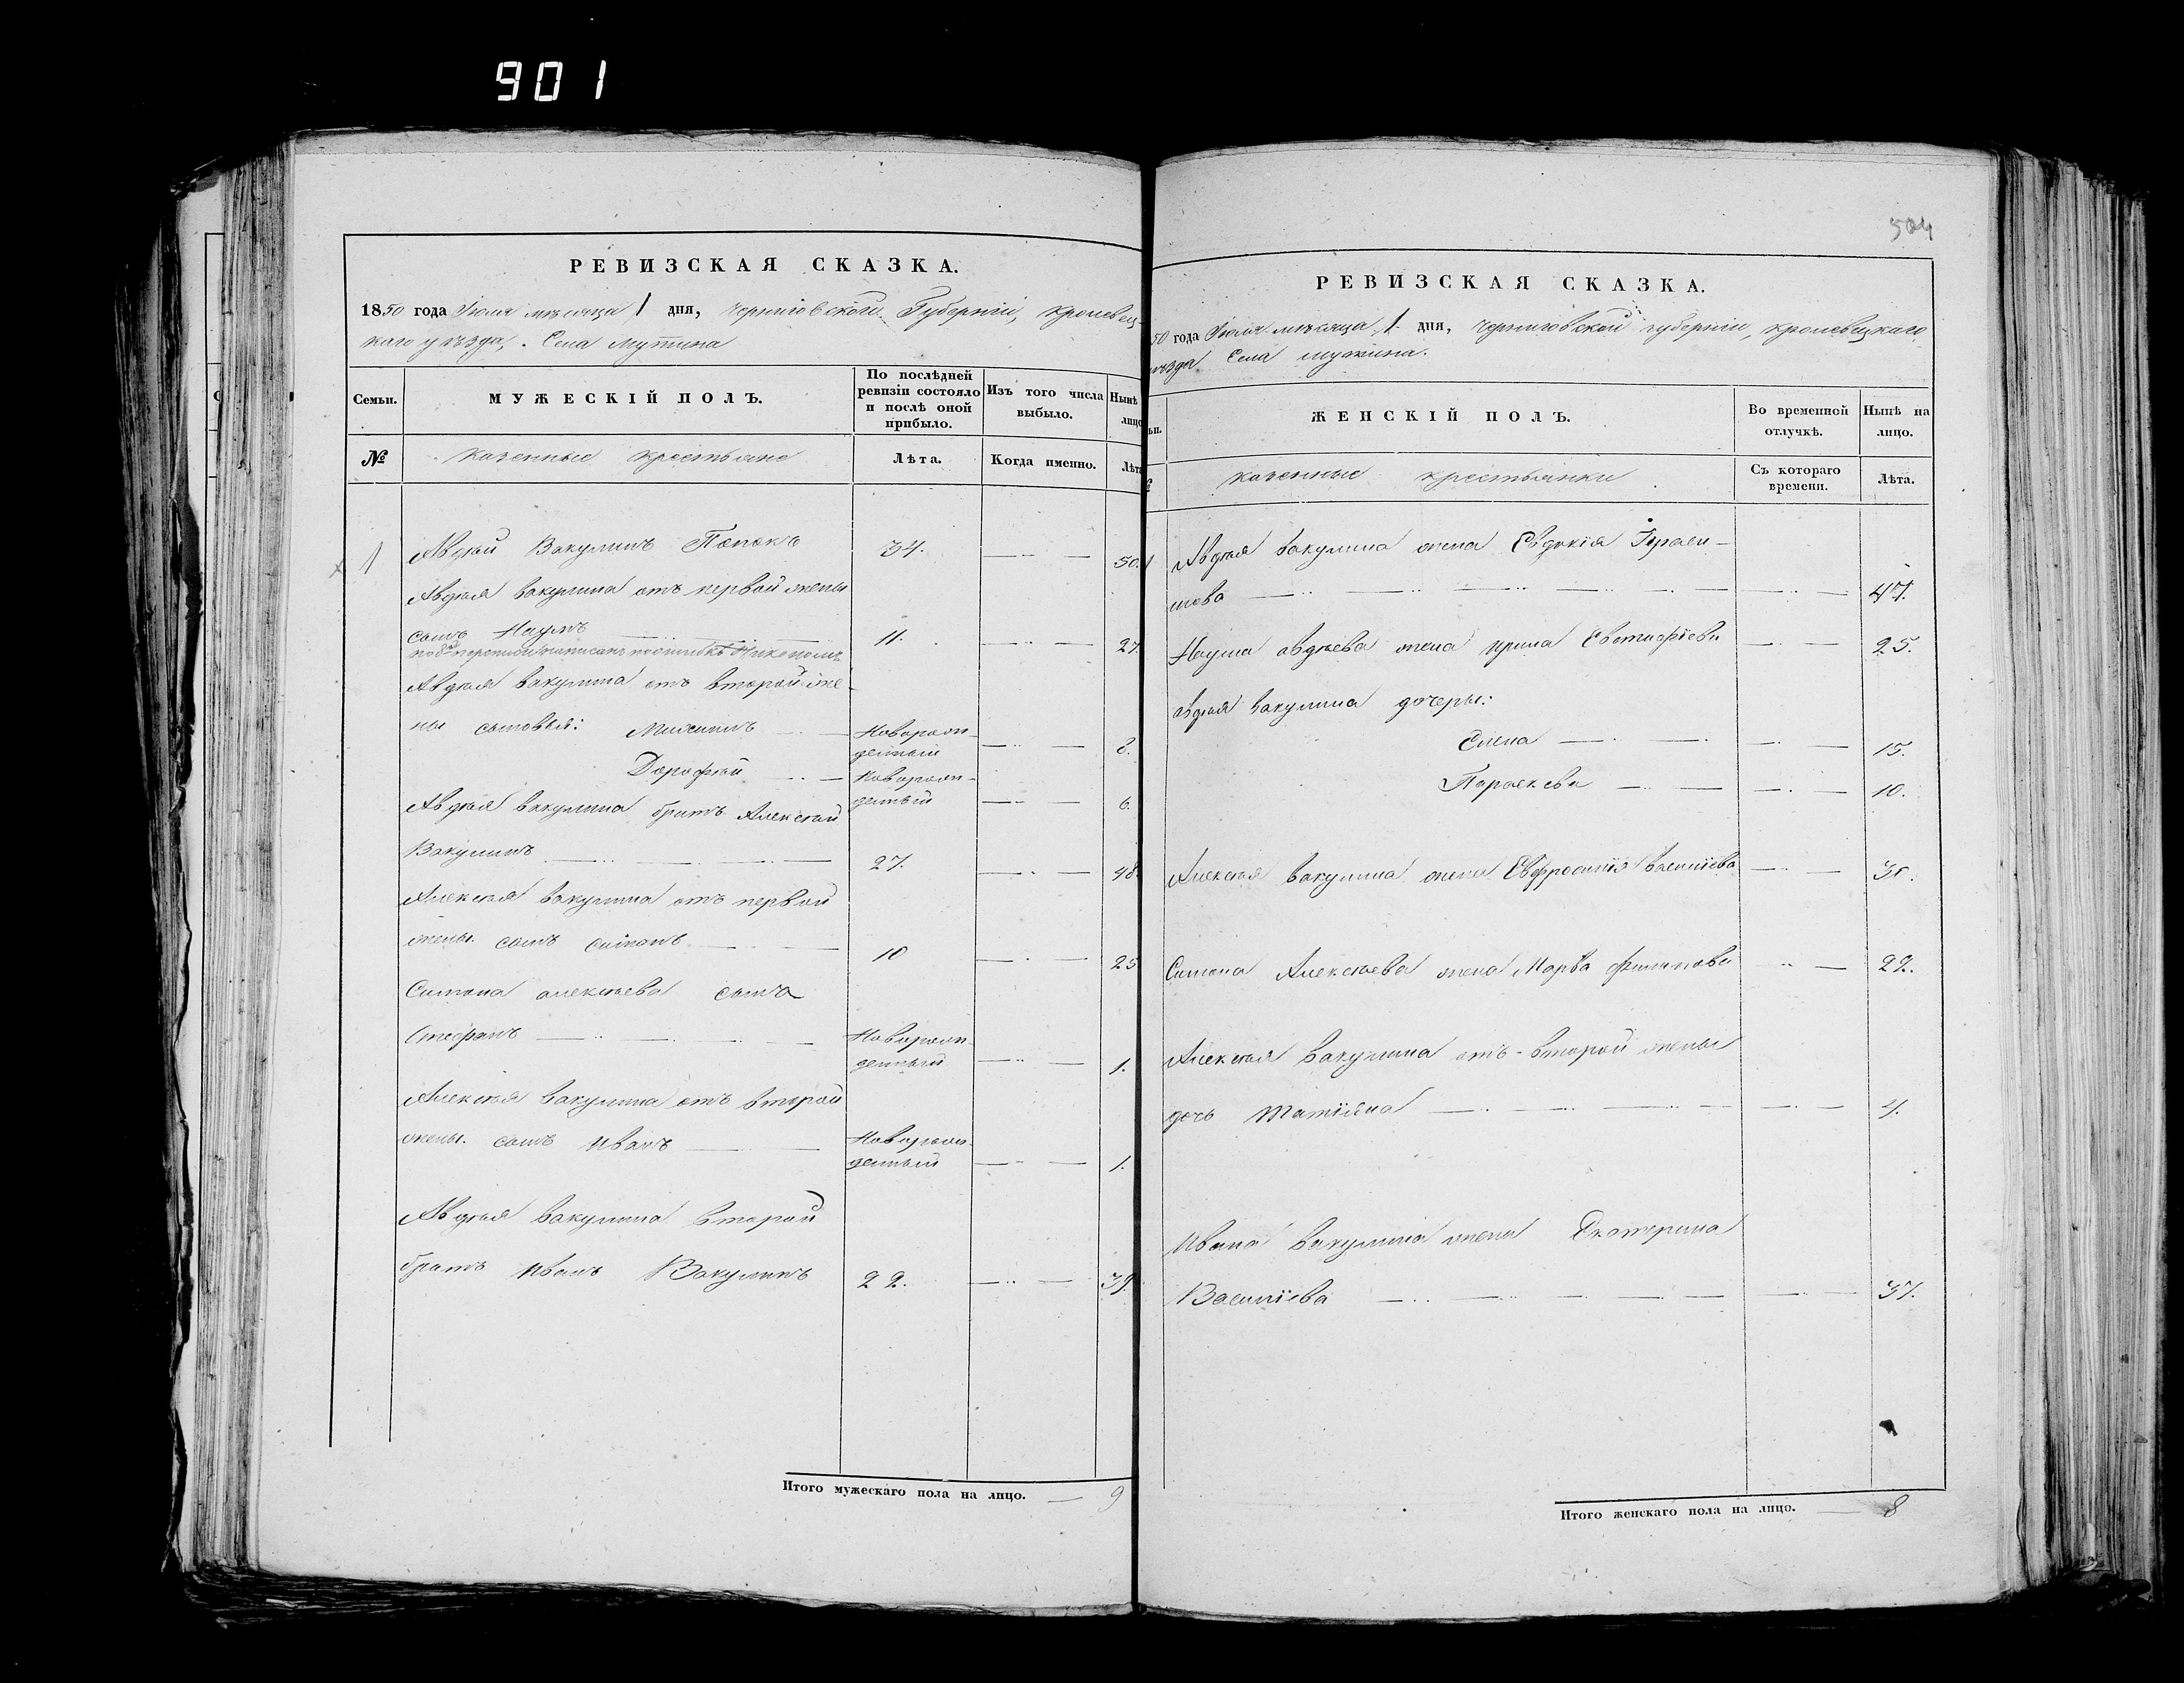 901
504
РЕВИЗСКАЯ СКАЗКА.
1850 года Іюля мѣсяца 1 дня, Черниговской Губерніи, Кролевец-
каго уѣзда, Села Мутина
Семьи.
МУЖЕСКІЙ ПОЛЪ.
По послѣдней ревизіи состояло и послѣ оной прибыло.
Изъ того числа выбыло.
Нынѣ лицо
№
Казенные крестьяне
Лѣта.
Когда именно.
Лѣта
1 Авдѣй Вакулинъ Попокъ 34. 50.
Авдѣя Вакулина отъ первой жены
сынъ Наумъ 11. 27.
по 8й переписи написанъ по ошибкѣ
Авдѣя Вакулина отъ второй же-
ны сыновья: Новорож-
денный 8.
Дорофѣй Новорож-
денный 6.
Авдѣя Вакулина братъ Алексѣй
Вакулинъ 27. 48.
Алексѣя Вакулина отъ первой
жены сынъ Симонъ 10 25
Симона Алексѣева сынъ
Стефанъ Новорож-
денный 1.
Алексѣя Вакулина отъ второй
жены сынъ Иванъ Новорож-
денный 1.
Авдѣя Вакулина второй
братъ Иванъ Вакулинъ 22. 39.
Итого мужескаго пола на лицо. 9
РЕВИЗСКАЯ СКАЗКА.
50 года Іюля мѣсяца 1 дня, Черниговской губерніи, Кролевецкаго
уѣзда Села Мутина.
ьи.
ЖЕНСКІЙ ПОЛЪ.
Во временной отлучкѣ.
Нынѣ на лицо.
казенные крестьянки
Съ котораго времени.
Лѣта.
Авдѣя Вакулина жена Евдокія Гераси-
мова 47.
Наума Авдѣева жена Ирина Евстафіева 25.
Авдѣя Вакулина дочеры:
Елена 15.
Параскева 10.
Алексѣя Вакулина жена Евфросинія Василіева
Симона Алексѣева жена Марѳа Филипова 22.
Алексѣя Вакулина отъ второй жены
дочь Татіяна 4.
Ивана Вакулина жена Екатерина
Василіева 37.
Итого женскаго пола на лицо. 8